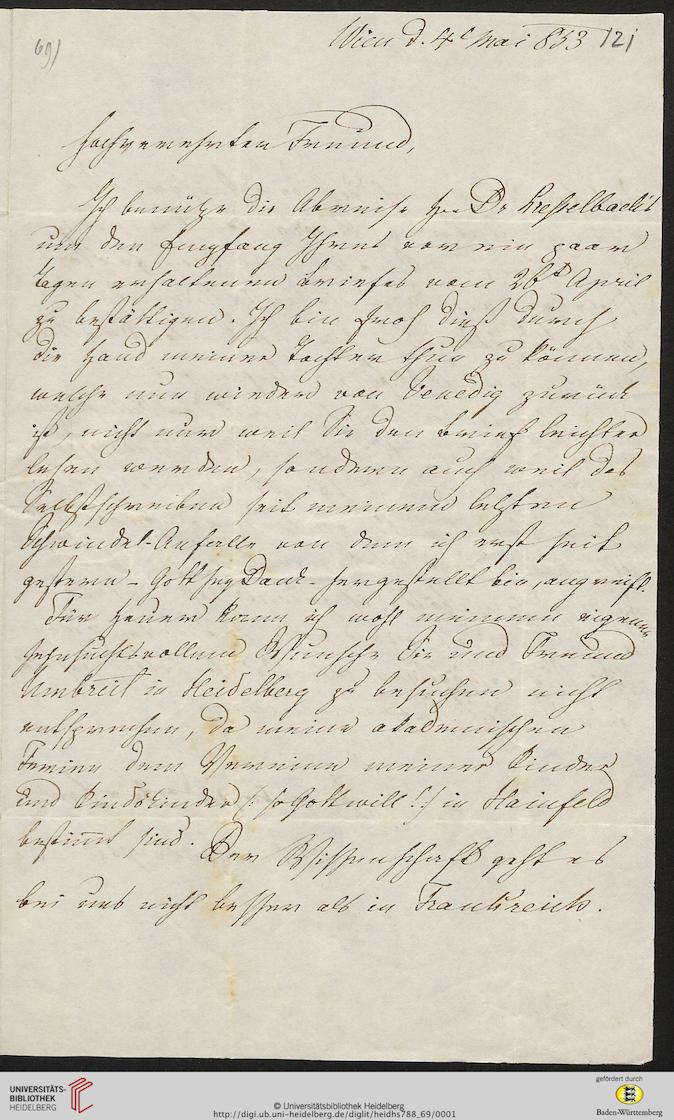 69)
Wien d. 4t Mai 853 121
Hochverehrter Freund,
Ich benütze die Abreise Hrn Dr Hesselbach's
um den Empfang Ihres vor ein paar
Tagen erhaltenen Briefes vom 26t April
zu bestättigen. Ich bin froh dieß durch
die Hand meiner Tochter thun zu können,
welche nun wieder von Venedig zurück
ist, nicht nur weil Sie den Brief leichter
lesen werden, sondern auch weil das
Selbstschreiben seit meinem letzten
Schwindel-Anfalle von dem ich erst seit
gestern - Gott sey Dank - hergestellt bin, angreift.
Für heuer kann ich wohl meinem eigenen
sehnsuchtsvollen Wunsche Sie und Freund
Umbreit in Heidelberg zu besuchen nicht
entsprechen, da meine akademischen
Ferien dem Vereine meiner Kinder
und Kindskinder /: so Gott will! :/ in Hainfeld
bestimmt sind. Der Wissenschaft geht es
bei uns nicht besser als in Frankreich.
UNIVERSITÄTS-
BIBLIOTHEK
HEIDELBERG
© Universitätsbibliothek Heidelberg
http://digi.ub.uni-heidelberg.de/diglit/heidhs788_69/0001
gefördert durch
Baden-Württemberg